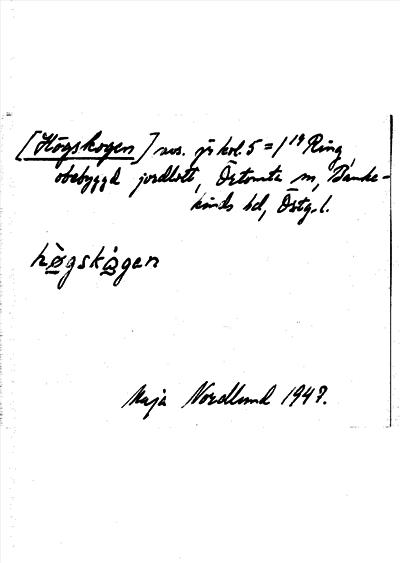 [Högskogen] avs. jr kol. 5 = 1/19 Ring
obebyggd jordlott, Örtomta sn, Banke-
kinds hd, Östg. l.
hø̀gskɷ́gen
Maja Nordlund 1947.